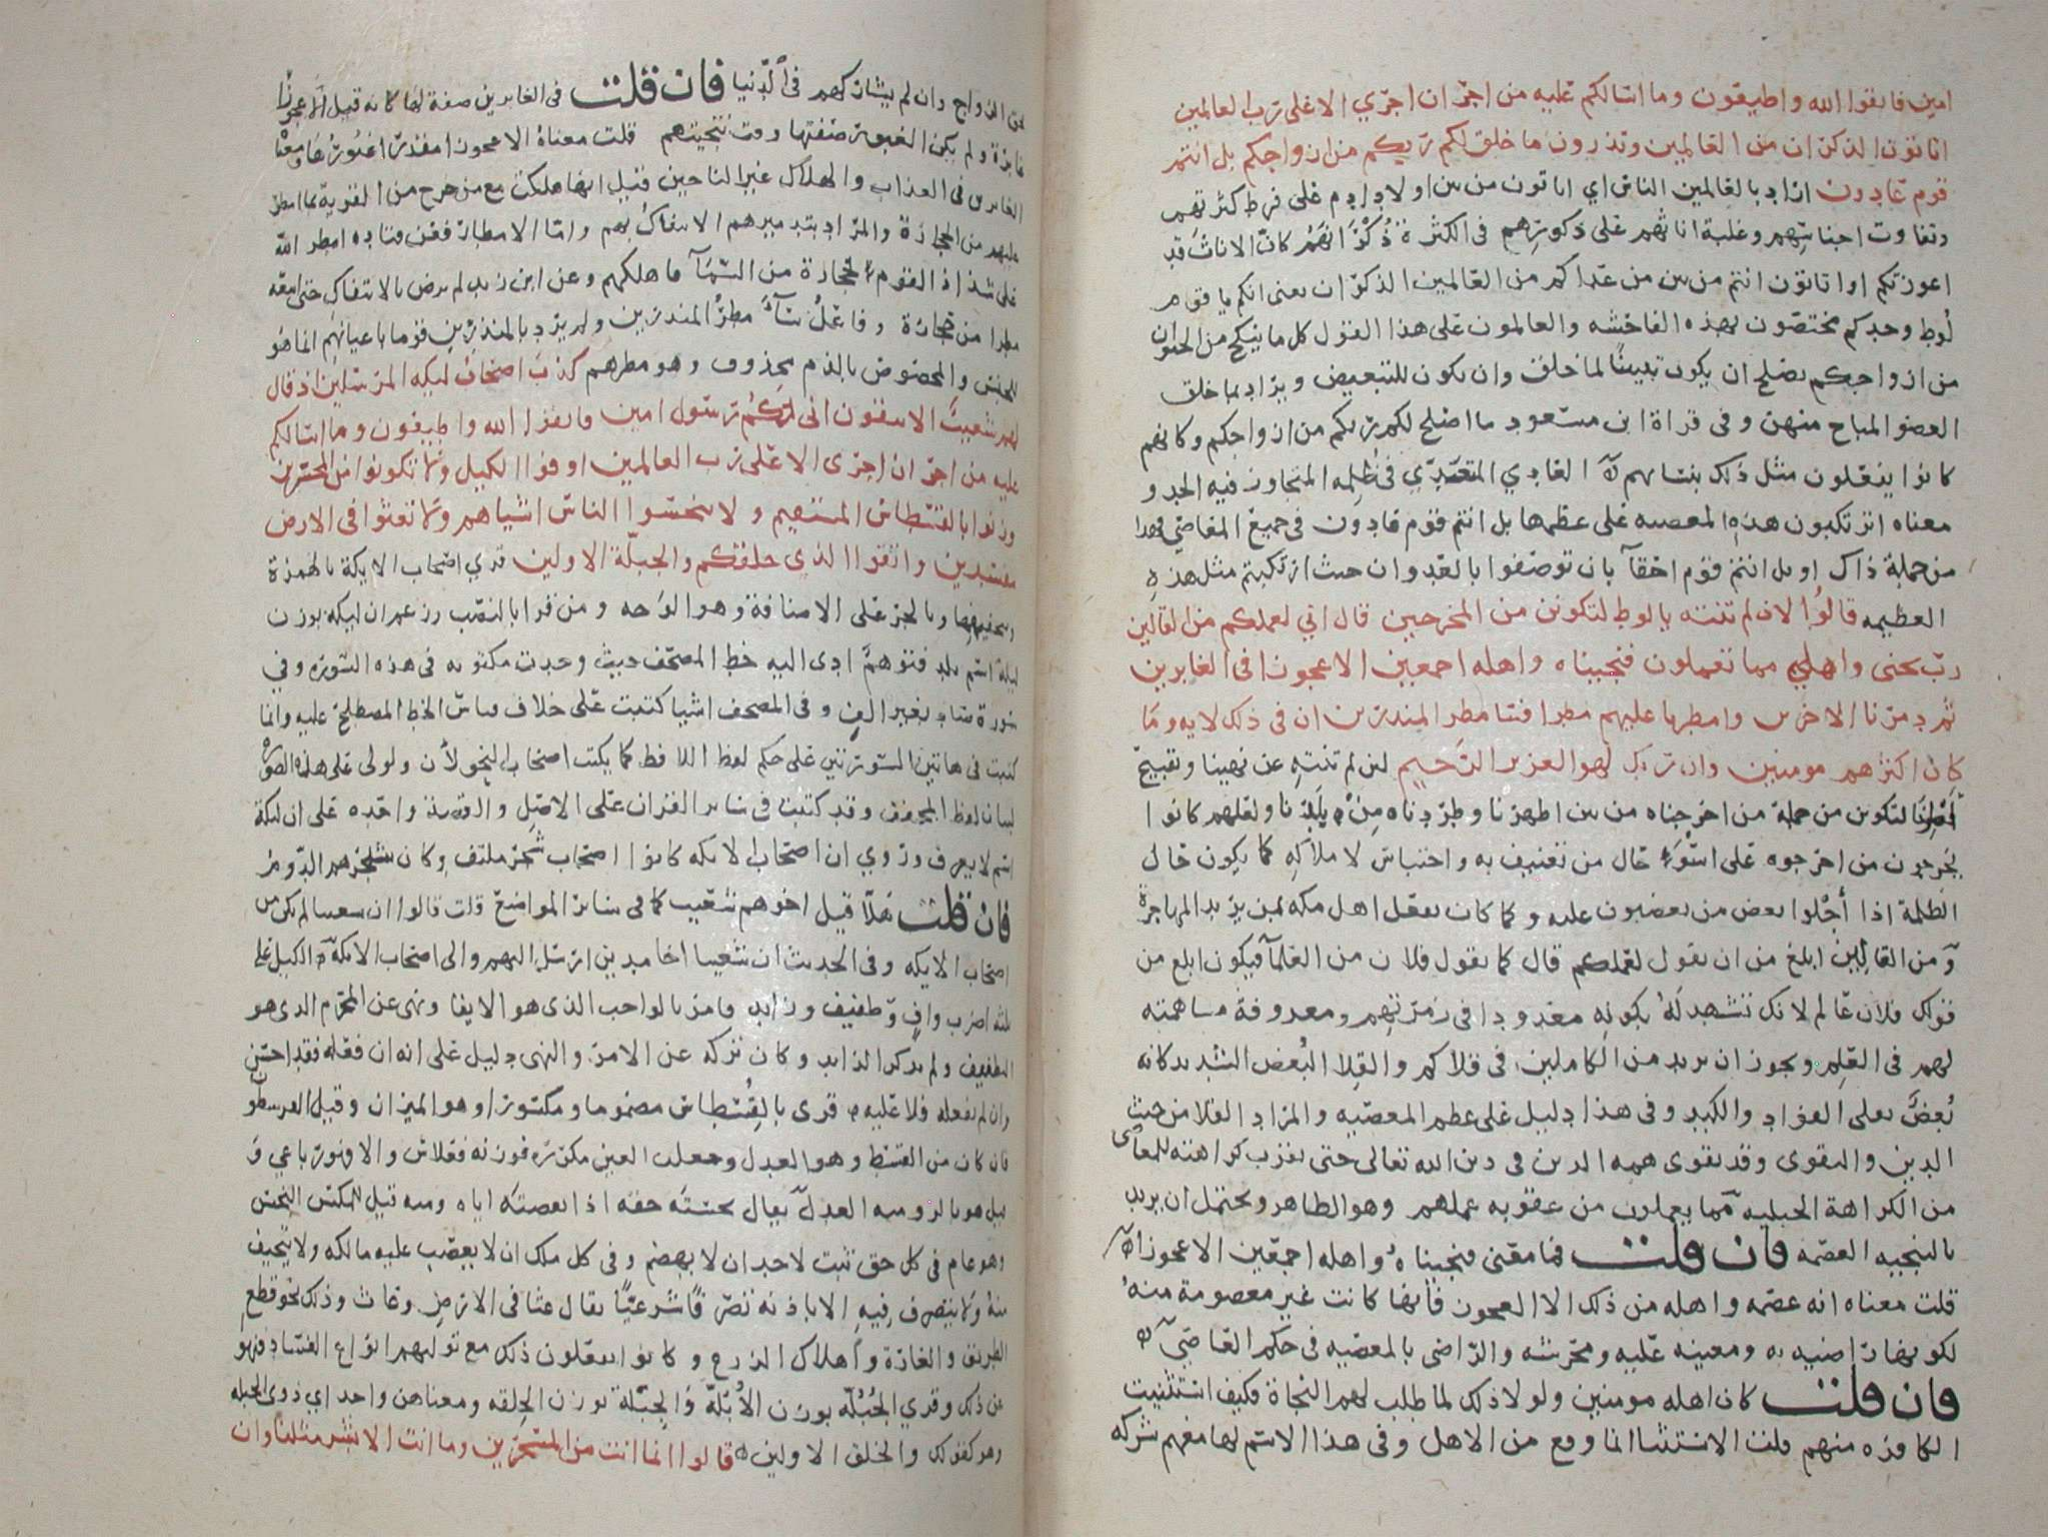 امين فاتقوا الله واطيعون وما اسالكم عليه من اجر ان اجري الا على رب العالمين
اتاتون الذكران من العالمين وتذرون ما خلق لكم ربكم من ازواجكم بل انتم
قوم عادون اراد بالعالمين الناس اي اتاتون من بين اولاد ادم على فرط كثرتهم
وتفاوت اجناسهم وغلبة اناثهم على ذكورهم في الكثرة ذكرانهم كان الاناث قد
اعوزتكم او اتاتون انتم من بين من عداكم من العالمين الذكران يعني انكم يا قوم
لوط وحدكم مختصون بهذه الفاحشه والعالمون على هذا القول كل ما ينكح من الحيوان
من ازواجكم يصلح ان يكون تبيينا لما خلق وان يكون للتبعيض ويراد بما خلق
العضو المباح منهن وفي قراة ابن مسعود ما اصلح لكم ربكم من ازواجكم وكانهم
كانوا يفعلون مثل ذلك بنسايهم العادي المتعدي في ظلمه المتجاوز فيه الحد و
معناه اترتكبون هذه المعصيه على عظمها بل انتم قوم عادون في جميع المعاصي فهذا
من جملة ذاك او بل انتم قوم احقآ بان توصفوا بالعدوان حيث ارتكبتم مثل هذه
العظيمه قالوا لان لم تنته يا لوط لتكونن من المخرجين قال اني لعملكم من القالين
رب نجنى واهلي مما تعملون فنجيناه واهله اجمعين الا عجوزا في الغابرين
ثم دمرنا الاخرين وامطرنا عليهم مطرا فسا مطر المنذرين ان في ذلك لايه وما
كان اكثرهم مومنين وان ربك لهو العزيز الرحيم لئن لم تنته عن نهينا وتقبيح
امرنا لتكونن من جملة من اخرجناه من بين اظهرنا وطردناه من بلدنا ولعلهم كانوا
يخرجون من اخرجوه على اسوء حال من تعنيف به واحتباس لاملاكه كما يكون حال
الظلمة اذا أجلوا بعض من يغضبون عليه وكما كان يفعل اهل مكه بمن يريد المهاجرة
و من القالين ابلغ من ان يقول لعملكم قال كما يقول فلان من العلمآ فيكون ابلغ من
قولك فلان عالم لانك تشهد له بكونه معدودا في زمرتهم ومعروفة مساهمته
لهم في العلم ويجوز ان يريد من الكاملين في قلاكم والقلا البعض الشديد كانه
بغض يقلى الفواد والكبد وفي هذا دليل على عظم المعصيه والمراد القلا من حيث
الدين والتقوى وقد يقوى همه الدين في دين الله تعالى حتى تقرب كراهته للمعاصى
من الكراهة الجبليه مما يعملون من عقوبه عملهم وهو الظاهر ويحتمل ان يريد
بالتنجيه العصمه فان قلت فما معنى فنجيناه واهله اجمعين الا عجوزا
قلت معناه انه عصمه واهله من ذلك الا العجوز فانها كانت غير معصومة منه
لكونها راضيه به ومعينه عليه ومحرشه والراضى بالمعصيه في حكم العاصي
فان قلت كان اهله مومنين ولولا ذلك لما طلب لهم النجاة فكيف استثنيت
الكافره منهم قلت الاستثنا انما وقع من الاهل وفى هذا الاسم لها معهم شركه
بحق الزواج وان لم يشاركهم في الدنيا فان قلت في الغابرين صفة لها كانه قيل الا عجوزا
غابرة ولم يكن الغبور صفتها وقت تنجيتهم قلت معناه الا عجوزا مقدرا غبورها ومعنى
الغابرين في العذاب والهلاك غير الناجين قيل انها هلكت مع من خرج من القرية بما امطر
عليهم من الحجارة والمراد بتدميرهم الايتفاك بهم وامّا الامطار فعن قتاده امطر الله
على شذاذ القوم حجارة من السمآ فاهلكهم وعن ابن زيد لم يرض بالايتفاك حتى اتبعه
مطرا من حجارة وفاعل سآء مطر المنذرين ولم يرد بالمنذرين قوما باعيانهم انما هو
للجنس والمخصوص بالذم محذوف وهو مطرهم كذب اصحاب ليكه المرسلين اذ قال
لهم شعيب الا تتقون اني لكم رسول امين فاتقوا الله واطيعون وما اسالكم
عليه من اجر ان اجرى الا على رب العالمين اوفوا الكيل ولا تكونوا من المخسرين
وزنوا بالقسطاس المستقيم ولا تبخسوا الناس اشياهم ولا تعثوا في الارض
مفسدين واتقوا الذي خلقكم والجبلّة الاولين قري اصحاب الايكة بالهمزة
وبتخفيفها وبالجر على الاضافة وهو الوجه ومن قرا بالنصب وزعم ان ليكة بوزن
ليلة اسم بلد فتوهم ادى اليه خط المصحف حيث وجدت مكتوبه في هذه السورة وفي
سورة صاد بغير الف وفي المصحف اشيا كتبت على خلاف قياس الخط المصطلح عليه وانما
كتبت في هاتين السورتين على حكم لفظ اللافظ كما يكتب اصحاب النحو لان ولولى على هذه الصوره
لبيان لفظ المخفف وقد كتبت في ساير القران على الاصل والقصة واحده على ان ليكة
اسم لا يعرف وروي ان اصحاب الايكه كانوا اصحاب شجر ملتف وكان شجرهم الدوم
فان قلت هلا قيل اخوهم شعيب كما في ساير المواضع قلت قالوا ان شعيبا لم يكن من
اصحاب الايكه وفي الحديث ان شعيبا اخا مدين ارسل اليهم والى اصحاب الايكة الكيل على
ثلثه اضرب واف وطفيف وزايد فامر بالواجب الذى هو الايفا ونهى عن المحرم الذى هو
التطفيف ولم يذكر الزايد وكان تركه عن الامر والنهى دليل على انه ان فعله فقد احسن
وان لم يفعله فلا عليه قرى بالقسطاس مضموما ومكسورا وهو الميزان وقيل القرسطون
فان كان من القسط وهو العدل وجعلت العين مكررة فوزنه فعلاس والا فهو رباعي و
قيل هو بالروميه العدل يقال بخسته حقه اذا نقصته اياه ومنه قيل للمكس البخس
وهو عام في كل حق ثبت لاحد ان لا يهضم وفي كل ملك ان لا يغصب عليه مالكه ولا يتحيف
منه ولا يتصرف فيه الا باذنه تصرفا شرعيا يقال عثا في الارض وعاث وذلك نحو قطع
الطريق والغارة واهلاك الزرع وكانوا يفعلون ذلك مع توليهم انواع الفساد فنهوا
عن ذلك وقري الجُبُلّة بوزن الأُبُلّة والجِبْلَة بوزن الخلقه ومعناهن واحد اي ذوى الجبله
وهو كقولك والخلق الاولين قالوا انما انت من المسحرين وما انت الا بشر مثلنا وان